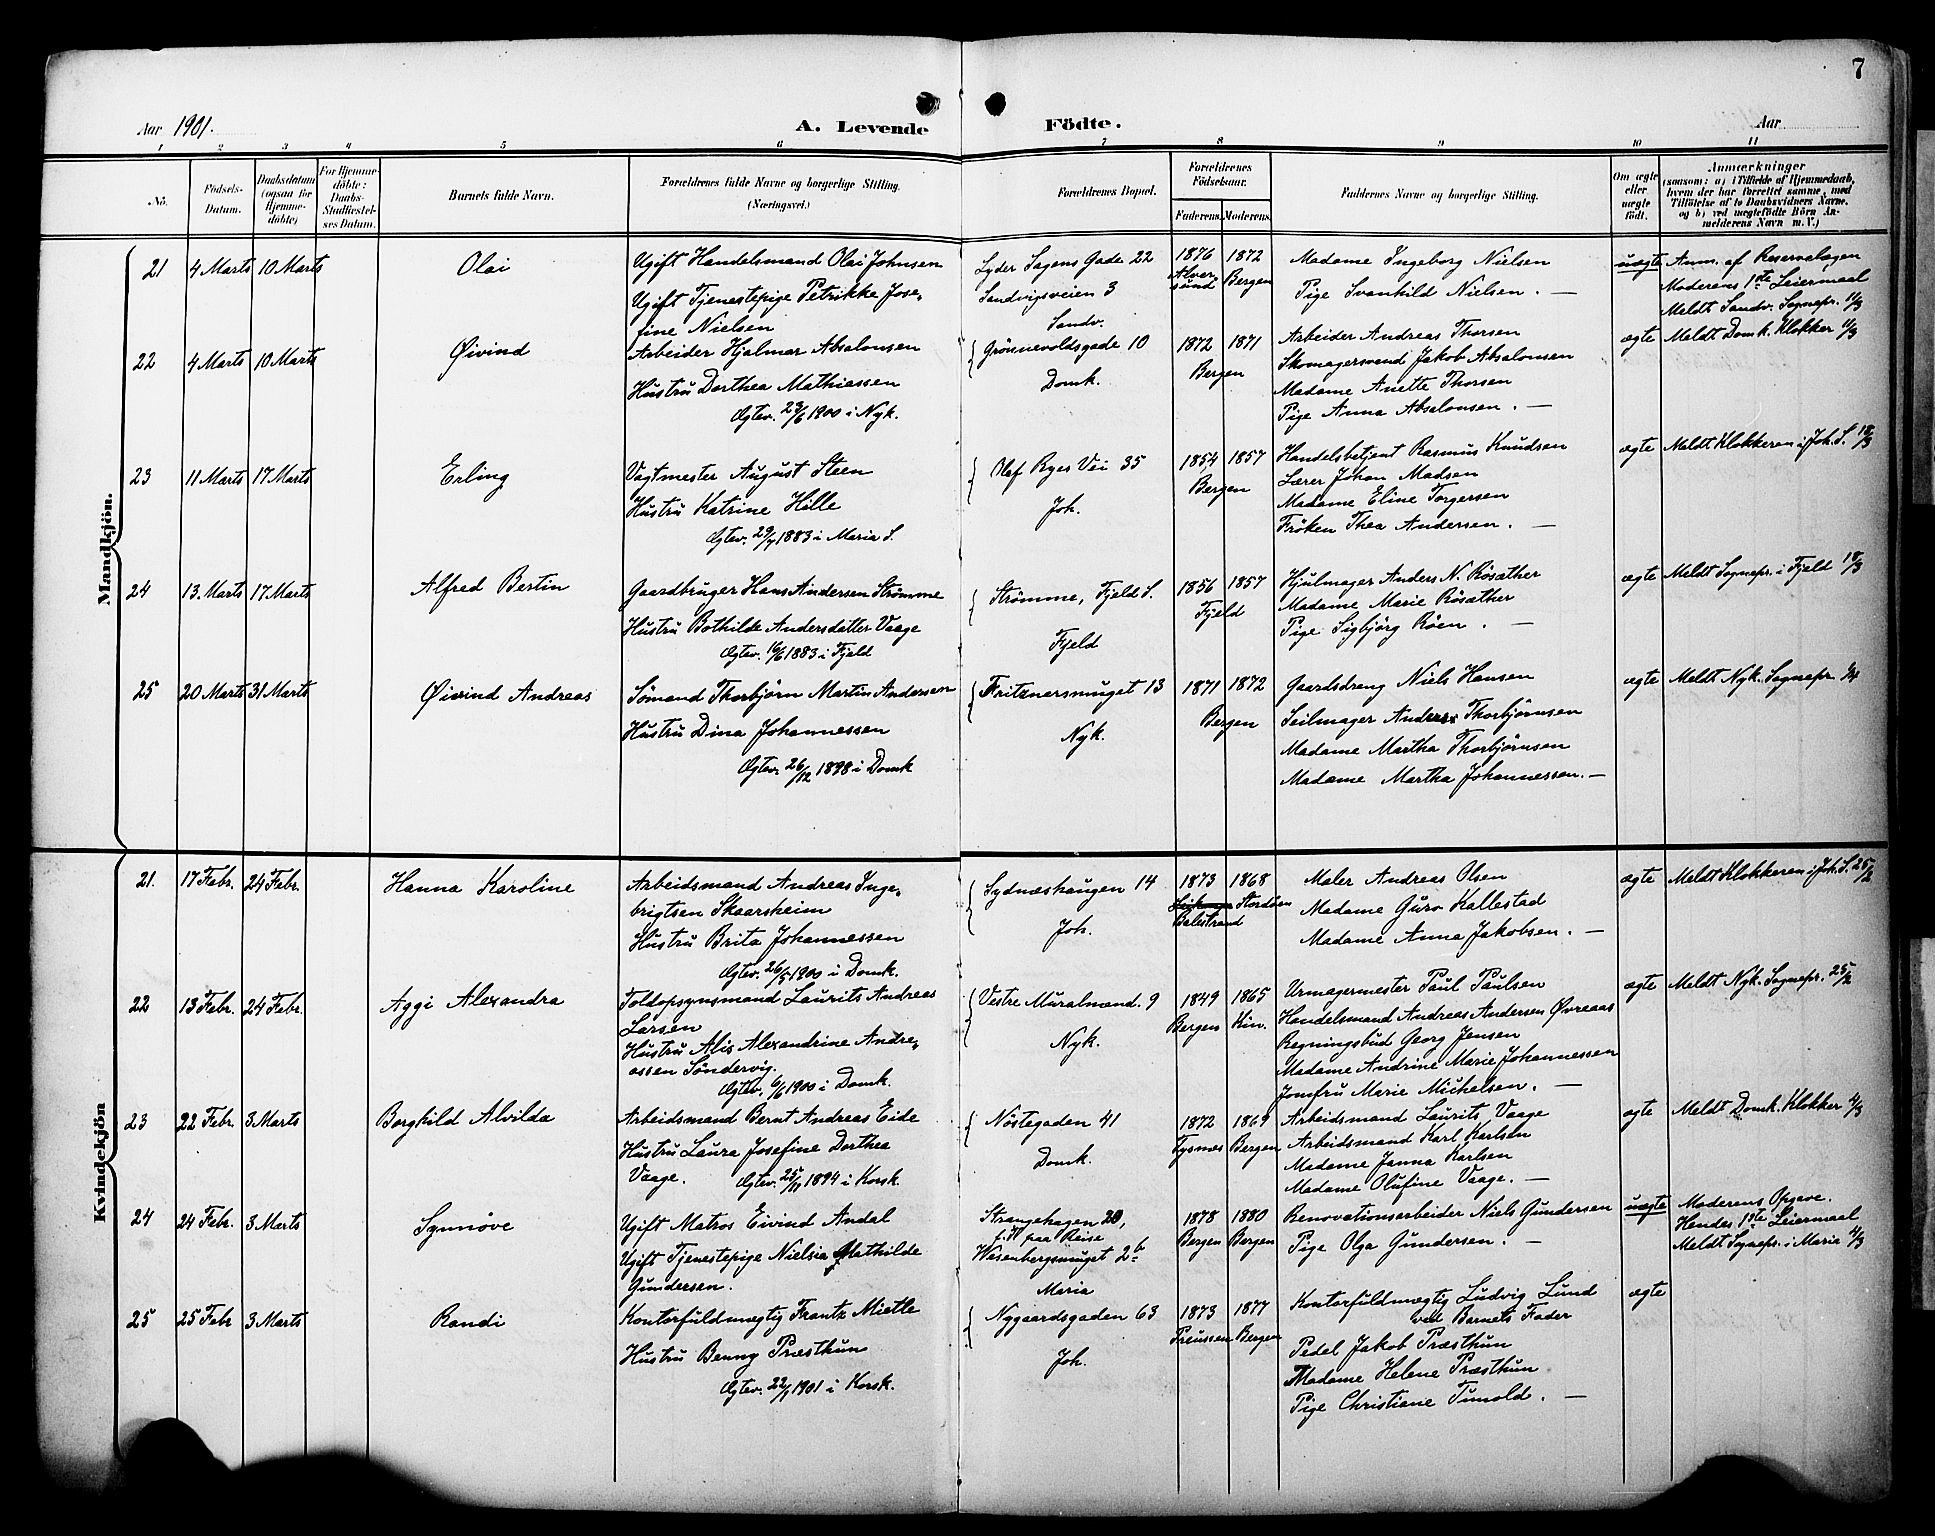 7
Aar 1901.
A. Levende Födte.
Aar
1 2 3 4 5 6 7 8 9 10 11
No.
Födsels-Datum.
Daabsdatum (ogsaa for Hjemmedöbte)
For Hjemmedöbte: Daabs-Stadfæstelses Datum.
Barnets fulde Navn.
Forældrenes fulde Navne og borgerlige Stilling.
(Næringsvei.)
Forældrenes Bopæl.
Forældrenes Födselsaar.
Faderens. Moderens.
Faddernes Navne og borgerlige Stilling.
Om ægte eller uægte födt.
Anmærkninger
(saasom: a) i Tilfælde af Hjemmedaab, hvem der har forrettet samme, med Tilföielse af to Daabsvidners Navne, og b) ved uægtefödte Börn Anmelderens Navn m. V.)
Mandkjön.
21 4 Marts 10 Marts Olai
Ugift Handelsmand Olai Johnsen
Ugift Tjenestepige Petrikke Jose-
fine Nielsen
Lyder Sagens Gade 22
Sandvigsveien 3
Sandv.
1876 1872
Alver- Bergen
sund
Madame Ingeborg Nielsen
Pige Svanhild Nielsen. —
uægte
Anm. af Reservelægen
Moderens 1ste Leiermaal
Meldt Sandv. Sognepr. 11/3
22 4 Marts 10 Marts Øivind
Arbeider Hjalmar Absalonsen
Hustru Dorthea Mathiassen
Ægtev. 23/6 1900 i Nyk.
Grönnevoldsgade 10
Domk.
1872 1871
Bergen
Arbeider Andreas Thorsen
Skomagersvend Jakob Absalonsen
Madame Anette Thorsen
Pige Anna Absalonsen. —
ægte
Meldt Domk. Klokker 11/3
23 11 Marts 17 Marts Erling
Vagtmester August Steen
Hustru Katrine Hille
Ægtev. 29/4 1883 i Maria S.
Olaf Ryes Vei 35
Joh.
1854 1857
Bergen
Handelsbetjent Rasmus Knudsen
Lærer Johan Madsen
Madame Eline Torgersen
Fröken Thea Andersen. —
ægte
Meldt Klokkeren i Joh. S. 18/3
24 13. Marts 17 Marts Alfred Bertin
Gaardbruger Hans Andersen Strømme
Hustru Bothilde Andersdatter Vaage
Ægtev. 16/6 1883 i Fjeld
Strømme, Fjeld S.
Fjeld
1856 1857
Fjeld
Hjulmager Anders N. Rösæther
Madame Marie Rösæther
Pige Sigbjörg Röen. —
ægte
Meldt Sognepr. i Fjeld 18/3
25 20 Marts 31 Marts Øivind Andreas
Sömand Thorbjörn Martin Andersen
Hustru Dina Johannessen
Ægtev. 26/12 1898 i Domk
Fritznersmuget 13
Nyk.
1871 1872
Bergen
Gaardsdreng Niels Hansen
Seilmager Andreas Thorbjörnsen
Madame Martha Thorbjörnsen
Madame Martha Johannessen. —
ægte
Meldt Nyk. Sognepr. 1/4
Kvindekjön
21. 17 Febr. 24 Febr. Hanna Karoline
Arbeidsmand Andreas Inge-
brigtsen Skaarsheim
Hustru Brita Johannessen
Ægtev. 26/5 1900 i Domk.
Sydnæshaugen 14
Joh.
1873 1868
Stordöen
Balestrand
Maler Andreas Olsen
Madame Guro Kallestad
Madame Anna Jakobsen. —
ægte
Meldt Klokkeren i Joh. S. 25/2
22 13 Febr. 24 Febr. Aggi Alexandra
Toldopsynsmand Laurits Andreas
Larsen
Hustru Alis Alexandrine Andre-
assen Söndervig.
Ægtev. 6/6 1900 i Domk.
Vestre Muralmend. 9
Nyk.
1849 1865
Bergen Kin.
Urmagermester Paul Paulsen
Handelsmand Andreas Andersen Øvreaas
Regningsbud Georg Jensen
Madame Andrine Marie Johannessen
Jomfru Marie Michelsen. —
ægte
Meldt Nyk. Sognepr. 25/2
23 22 Febr. 3 Marts Borghild Alvilda
Arbeidsmand Bernt Andreas Eide
Hustru Laura Josefine Dorthea
Vaage. Ægtev. 25/11 1894 i Korsk.
Nöstegaden 41
Domk.
1872 1869
Tysnæs Bergen
Arbeidsmand Laurits Vaage
Arbeidsmand Karl Karlsen
Madame Janna Karlsen
Madame Olufine Vaage. —
ægte
Meldt Domk. Klokker 4/3
24 24 Febr. 3 Marts Synnøve
Ugift Matros Eivind Andal
Ugift Tjenestepige Nielsia Mathilde
Gundersen.
Strangehagen 20,
p. t. paa Reise
Wesenbergsmuget 2b
Maria
1878 1880
Bergen Bergen
Renovationsarbeider Niels Gundersen
Pige Olga Gundersen. —
uægte
Moderens Opgave.
Hendes 1ste Leiermaal
Meldt Sognepr. i Maria 4/3
25 25 Febr 3 Marts Randi
Kontorfuldmægtig Frantz Mietle
Hustru Benny Præsthun
Ægtev. 22/1 1901 i Korsk.
Nygaardsgaden 63
Joh.
1873 1877
Preussen Bergen
Kontorfuldmægtig Ludvig Lund
ved Barnets Fader
Pedel Jakob Præsthun
Madame Helene Præsthun
Pige Christiane Tunold. —
ægte